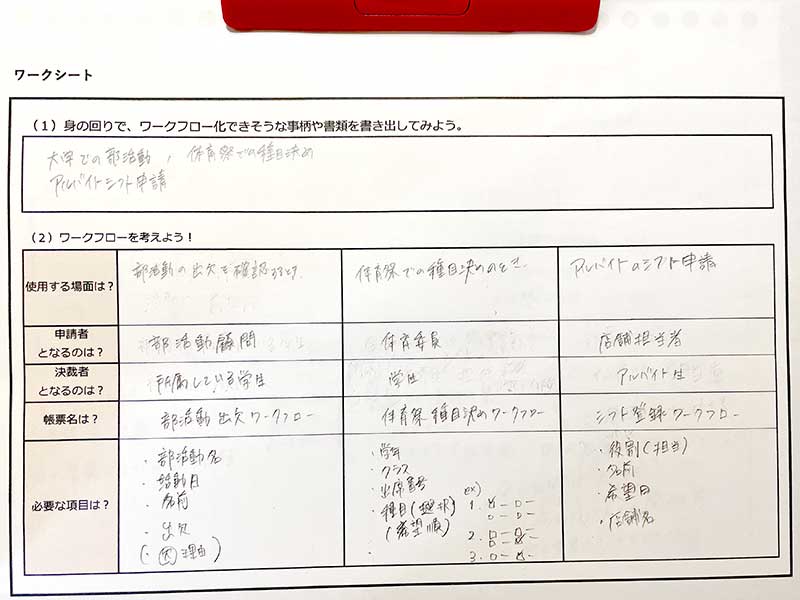 ワークシート
(1)身の回りで、ワークフロー化できそうな事柄や書類を書き出してみよう。
大学での部活動, 体育祭での種目決め
アルバイトシフト申請
(2)ワークフローを考えよう!
使用する場面は? 部活動の出欠を確認するとき. 体育祭での種目決めのとき. アルバイトのシフト申請
申請者
となるのは? 部活動顧問 体育委員 店舗担当者
決裁者
となるのは? 所属している学生 学生 アルバイト生
帳票名は? 部活動出欠ワークフロー 体育祭種目決めワークフロー シフト登録ワークフロー
必要な項目は?
・部活動名
・活動日
・名前
・出欠
(・欠 理由)
・学年
・クラス
・出席番号
・種目(選択)
(希望順)
ex)
1.
2.
3.
・役割(担当)
・名前
・希望日
・店舗名